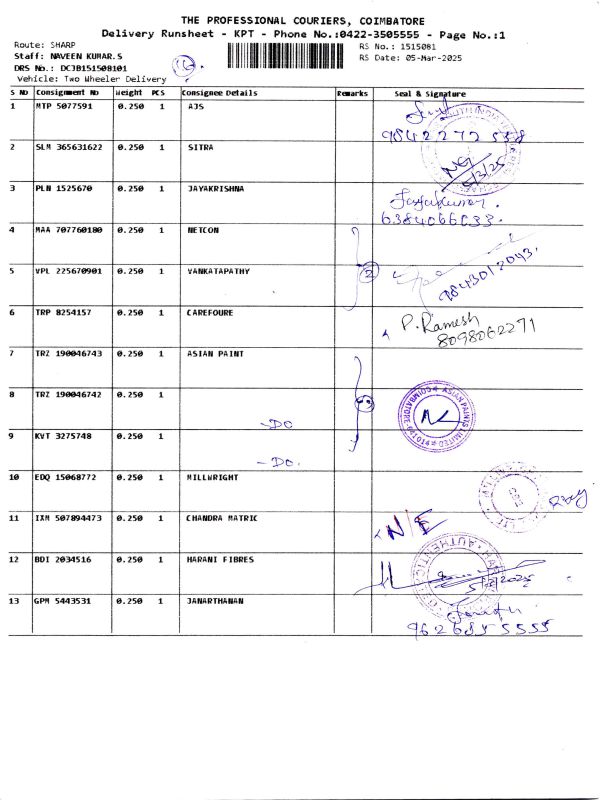 THE PROFESSIONAL COURIERS, COIMBATORE
Delivery Runsheet - KPT - Phone No.:0422-3505555 - Page No.:1
Route: SHARP
RS No.: 1515081
Staff: NAVEEN KUMAR.S
RS Date: 05-Mar-2025
DRS No.: DCJB151508101
Vehicle: Two Wheeler Delivery
S No Consignment No Weight PCS Consignee Details Remarks Seal & Signature
1 MTP 5077591 0.250 1 AJS
9842272558
2 SLM 365631622 0.250 1 SITRA
5/3/25
3 PLN 1525670 0.250 1 JAYAKRISHNA
6384066033.
4 MAA 707760180 0.250 1 NETCON
2
5 VPL 225670901 0.250 1 VANKATAPATHY
9843012043.
6 TRP 8254157 0.250 1 CAREFOURE
P. Ramesh
8098062271
7 TRZ 190046743 0.250 1 ASIAN PAINT
8 TRZ 190046742 0.250 1
-DO
ASIAN PAINTS LIMITED COIMBATORE
9 KVT 3275748 0.250 1
-DO.
10 EDQ 15068772 0.250 1 MILLWRIGHT
11 IXM 507894473 0.250 1 CHANDRA MATRIC
N/E
12 BDI 2034516 0.250 1 HARANI FIBRES
5/3/2025
13 GPM 5443531 0.250 1 JANARTHANAN
9626855555